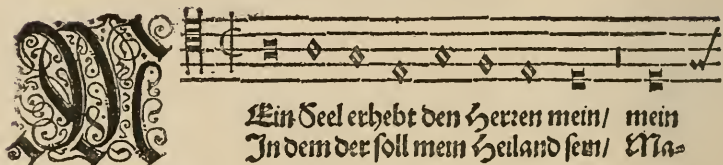 MEin Seel erhebt den Herren mein/ mein
In dem der soll mein Heiland sein/ Ma⸗